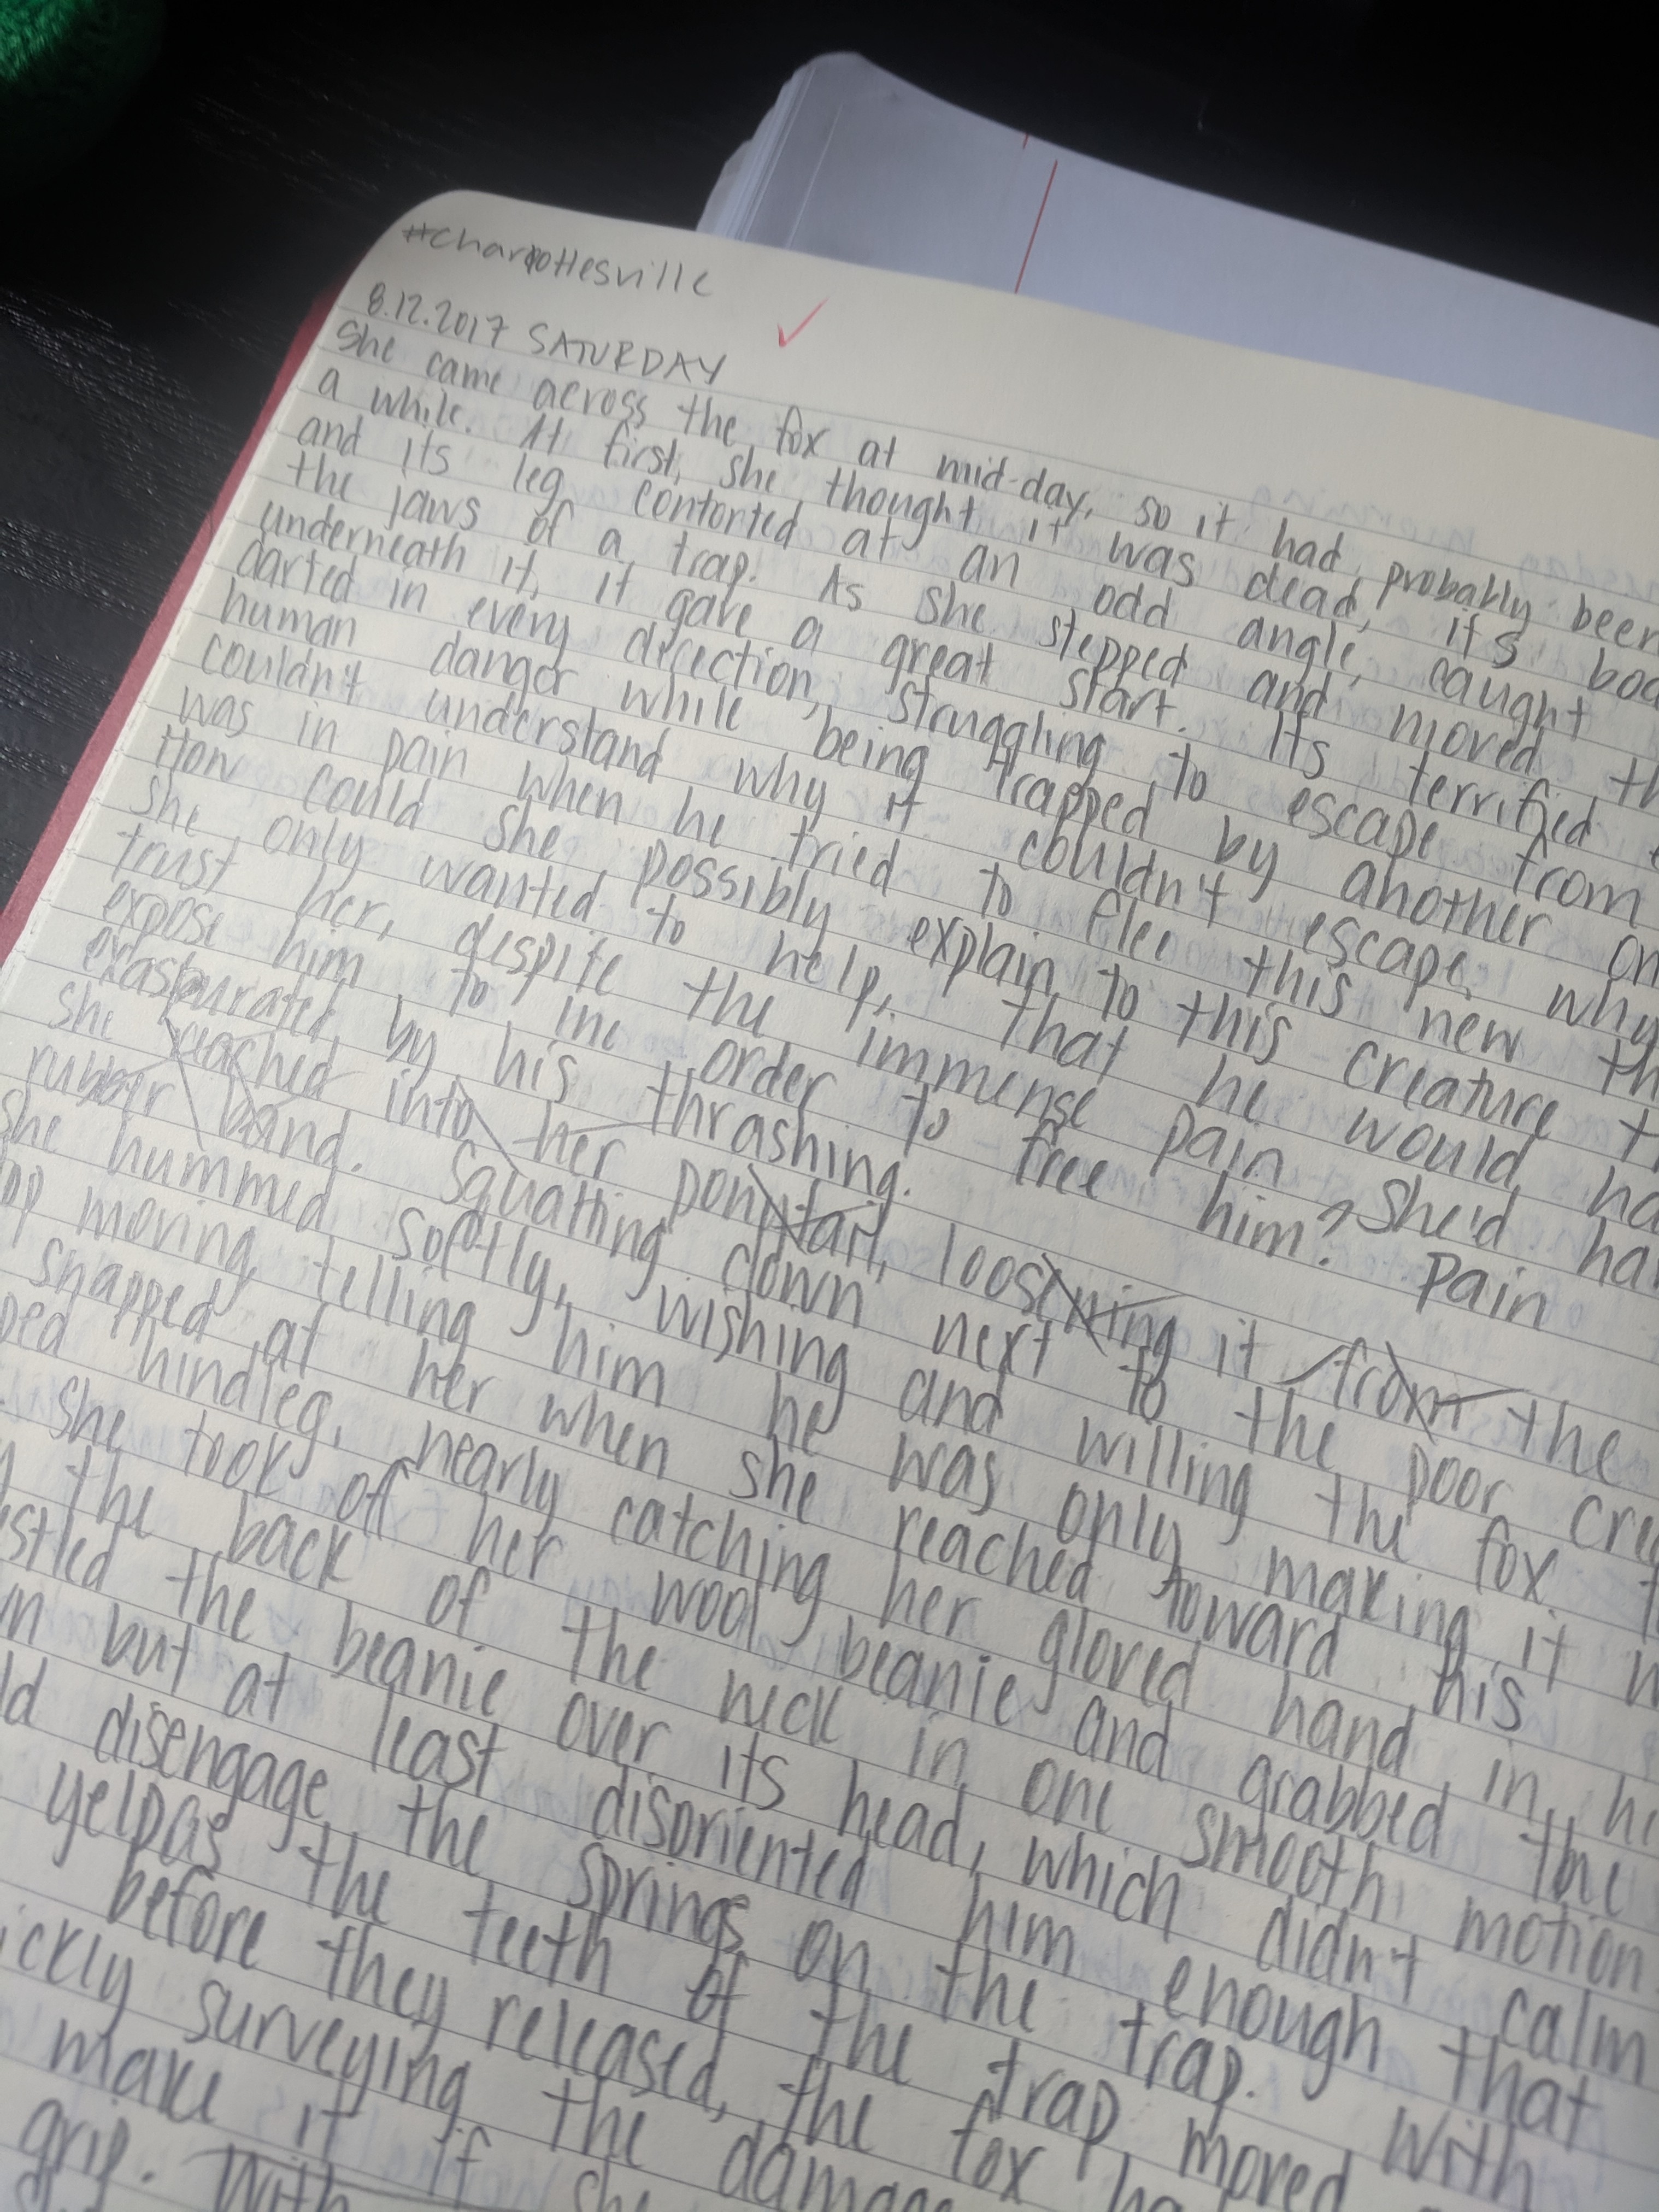 #charlottesville
8.12.2017 SATURDAY
She came across the fox at mid-day, so it had probably been
a while. At first, she thought it was dead, its
and its leg contorted at an odd angle, caught
the jaws of a trap. As she stepped and moved
underneath it, it gave a great start. Its terrified
darted in every direction, struggling to escape from
human danger while being trapped by another
couldn't understand why it couldn't escape, why
was in pain when he tried to flee this new
How could she possibly explain to this creature
she only wanted to help, that he would
trust her, despite the immense pain she'd
expose him to in order to free him? Pain
exasburated by his thrashing.
she reached into her ponytail, loosening it from the
rubber band. Squatting down next to the poor
she hummed softly, wishing and willing the fox
moving, telling him he was only making it
snapped at her when she reached toward his
hindleg, nearly catching her gloved hand in
she took off her wool beanie and grabbed the
the back of the neck in one smooth motion
the beanie over its head, which didn't calm
but at least disoriented him enough that
disengage the springs on the trap. With
yelpas the teeth of the trap moved
before they released, the fox
surveying the damage
make it if she
grip. With